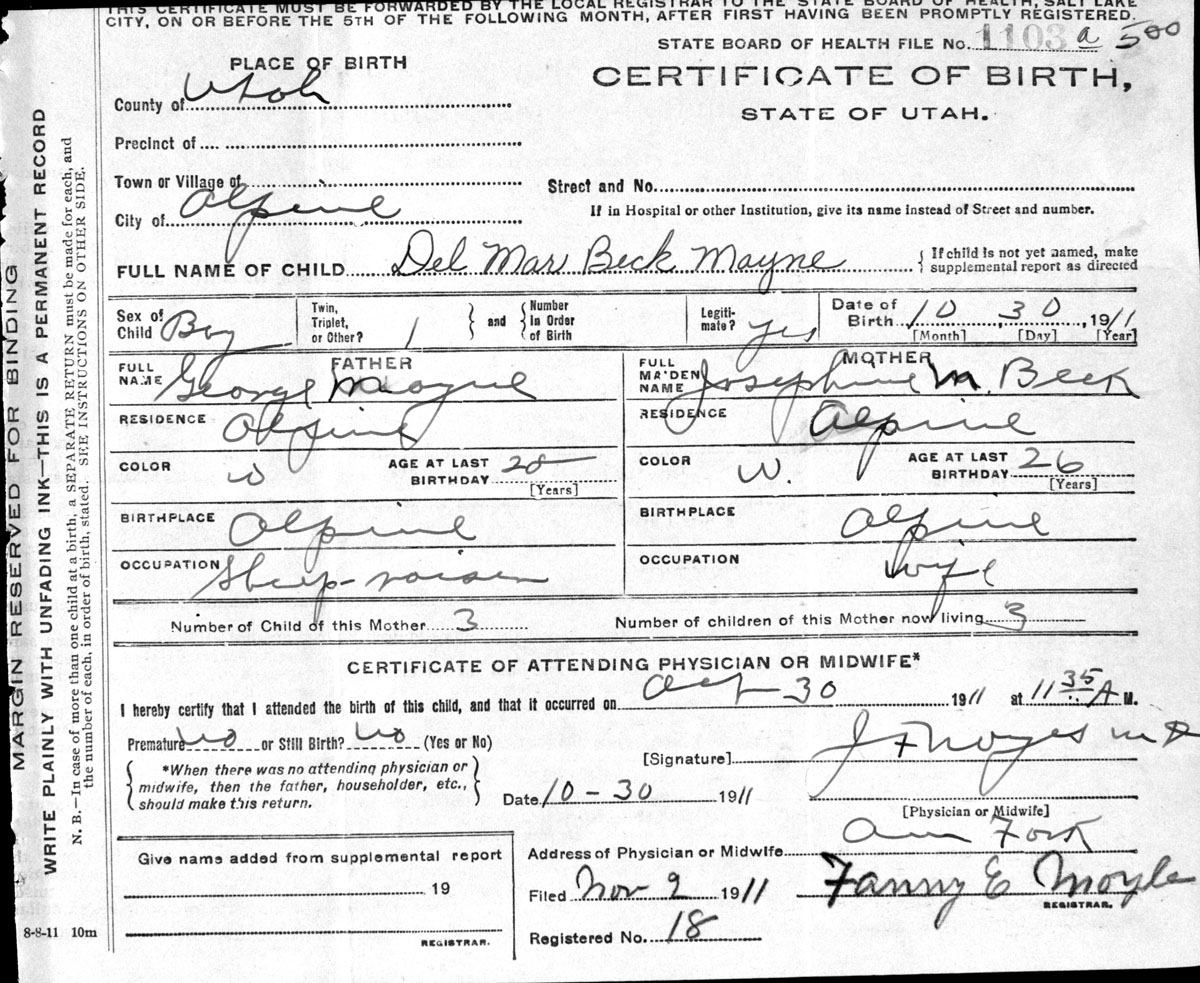 THIS CERTIFICATE MUST BE FORWARDED BY THE LOCAL REGISTRAR TO THE STATE BOARD OF HEALTH, SALT LAKE
CITY, ON OR BEFORE THE 5TH OF THE FOLLOWING MONTH, AFTER FIRST HAVING BEEN PROMPTLY REGISTERED.
STATE BOARD OF HEALTH FILE No. 1103 a 500
PLACE OF BIRTH
CERTIFICATE OF BIRTH,
STATE OF UTAH.
County of Utah
Precinct of
Town or Village of
Street and No.
City of Alpine
If in Hospital or other Institution, give its name instead of Street and number.
FULL NAME OF CHILD Del Mar Beck Mayne { If child is not yet named, make
supplemental report as directed
Sex of Child Boy
Twin, Triplet, or Other? 1 } and { Number In Order of Birth
Legiti-mate? yes
Date of Birth 10 30, 1911
[Month] [Day] [Year]
FATHER
FULL NAME George Mayne
MOTHER
FULL MAIDEN NAME Josephine M. Beck
RESIDENCE Alpine
RESIDENCE Alpine
COLOR W AGE AT LAST BIRTHDAY 28
[Years]
COLOR W. AGE AT LAST BIRTHDAY 26
[Years]
BIRTHPLACE Alpine
BIRTHPLACE Alpine
OCCUPATION Sheep-raiser
OCCUPATION Wife
Number of Child of this Mother 3 Number of children of this Mother now living 3
CERTIFICATE OF ATTENDING PHYSICIAN OR MIDWIFE*
I hereby certify that I attended the birth of this child, and that it occurred on Oct 30 1911 at 11 35 A M.
Premature No or Still Birth? No (Yes or No)
[Signature] J F Noyes MD
{ *When there was no attending physician or
midwife, then the father, householder, etc.,
should make this return. }
Date 10-30 1911
[Physician or Midwife]
Address of Physician or Midwife Am Fork
Give name added from supplemental report
19
REGISTRAR.
Filed Nov 2 1911 Fanny E Moyle
REGISTRAR.
Registered No. 18
8-8-11 10m
MARGIN RESERVED FOR BINDING
WRITE PLAINLY WITH UNFADING INK—THIS IS A PERMANENT RECORD
N. B.—In case of more than one child at a birth, a SEPARATE RETURN must be made for each, and
the number of each, in order of birth, stated. SEE INSTRUCTIONS ON OTHER SIDE.